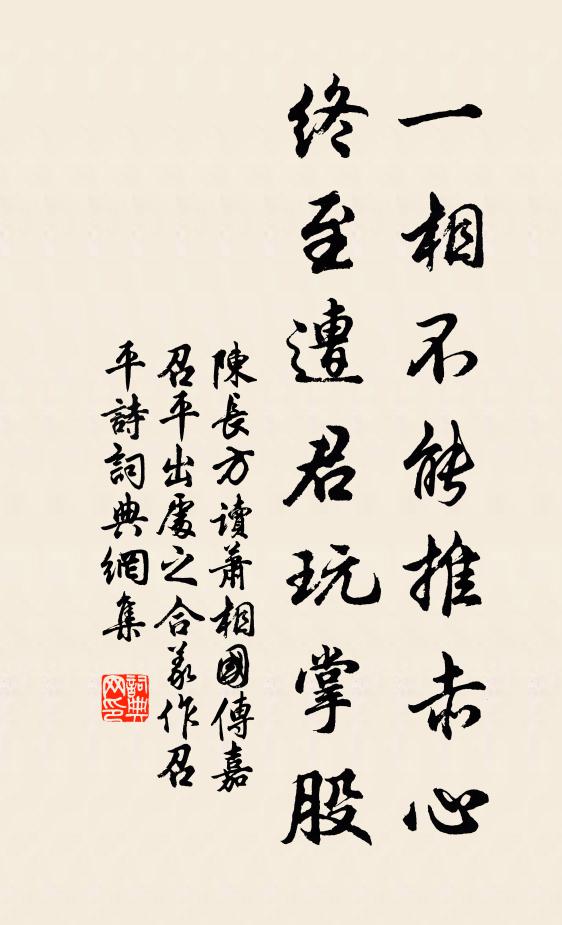 一相不能推赤心
終至遭君玩掌股
陳長方讀蕭相國傳嘉
召平出處之合義作召
平詩詞典網集
詞典
网印